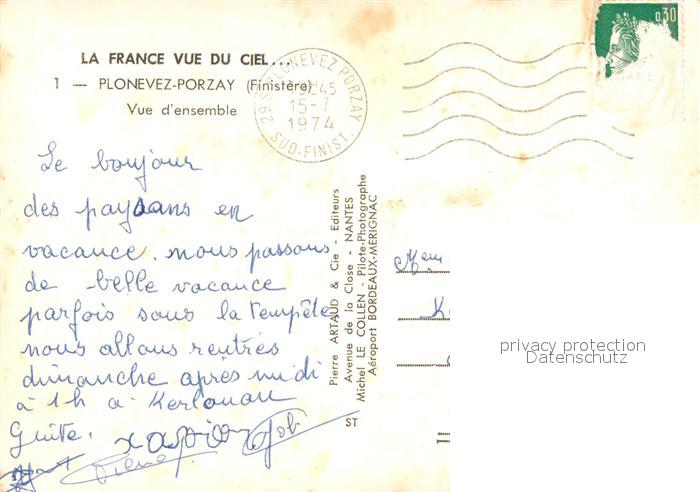 LA FRANCE VUE DU CIEL...
1 — PLONEVEZ-PORZAY (Finistère)
Vue d'ensemble
29 S PLONEVEZ PORZAY
15-7
1974
SUD-FINIST.
0,30
Le boujour
des paysans en
vacance. nous passons
de belle vacance
parfois sous la tempête
nous allons rentrés
dimanche après midi
à 1h a Kerlouan
Guite.
Job
Pierre ARTAUD & Cie - Editeurs
Avenue de la Close - NANTES
Michel LE COLLEN - Pilote-Photographe
Aéroport BORDEAUX-MERIGNAC
ST
privacy protection
Datenschutz